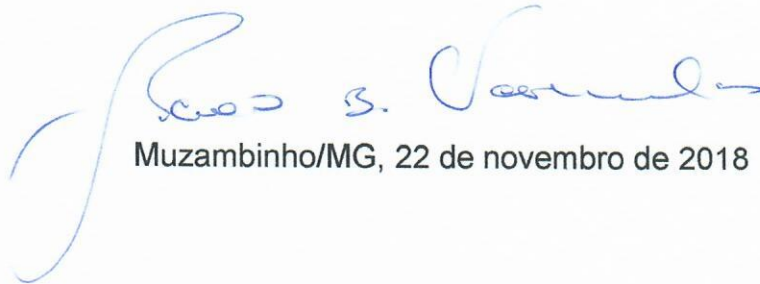 B.
Muzambinho/MG, 22 de novembro de 2018